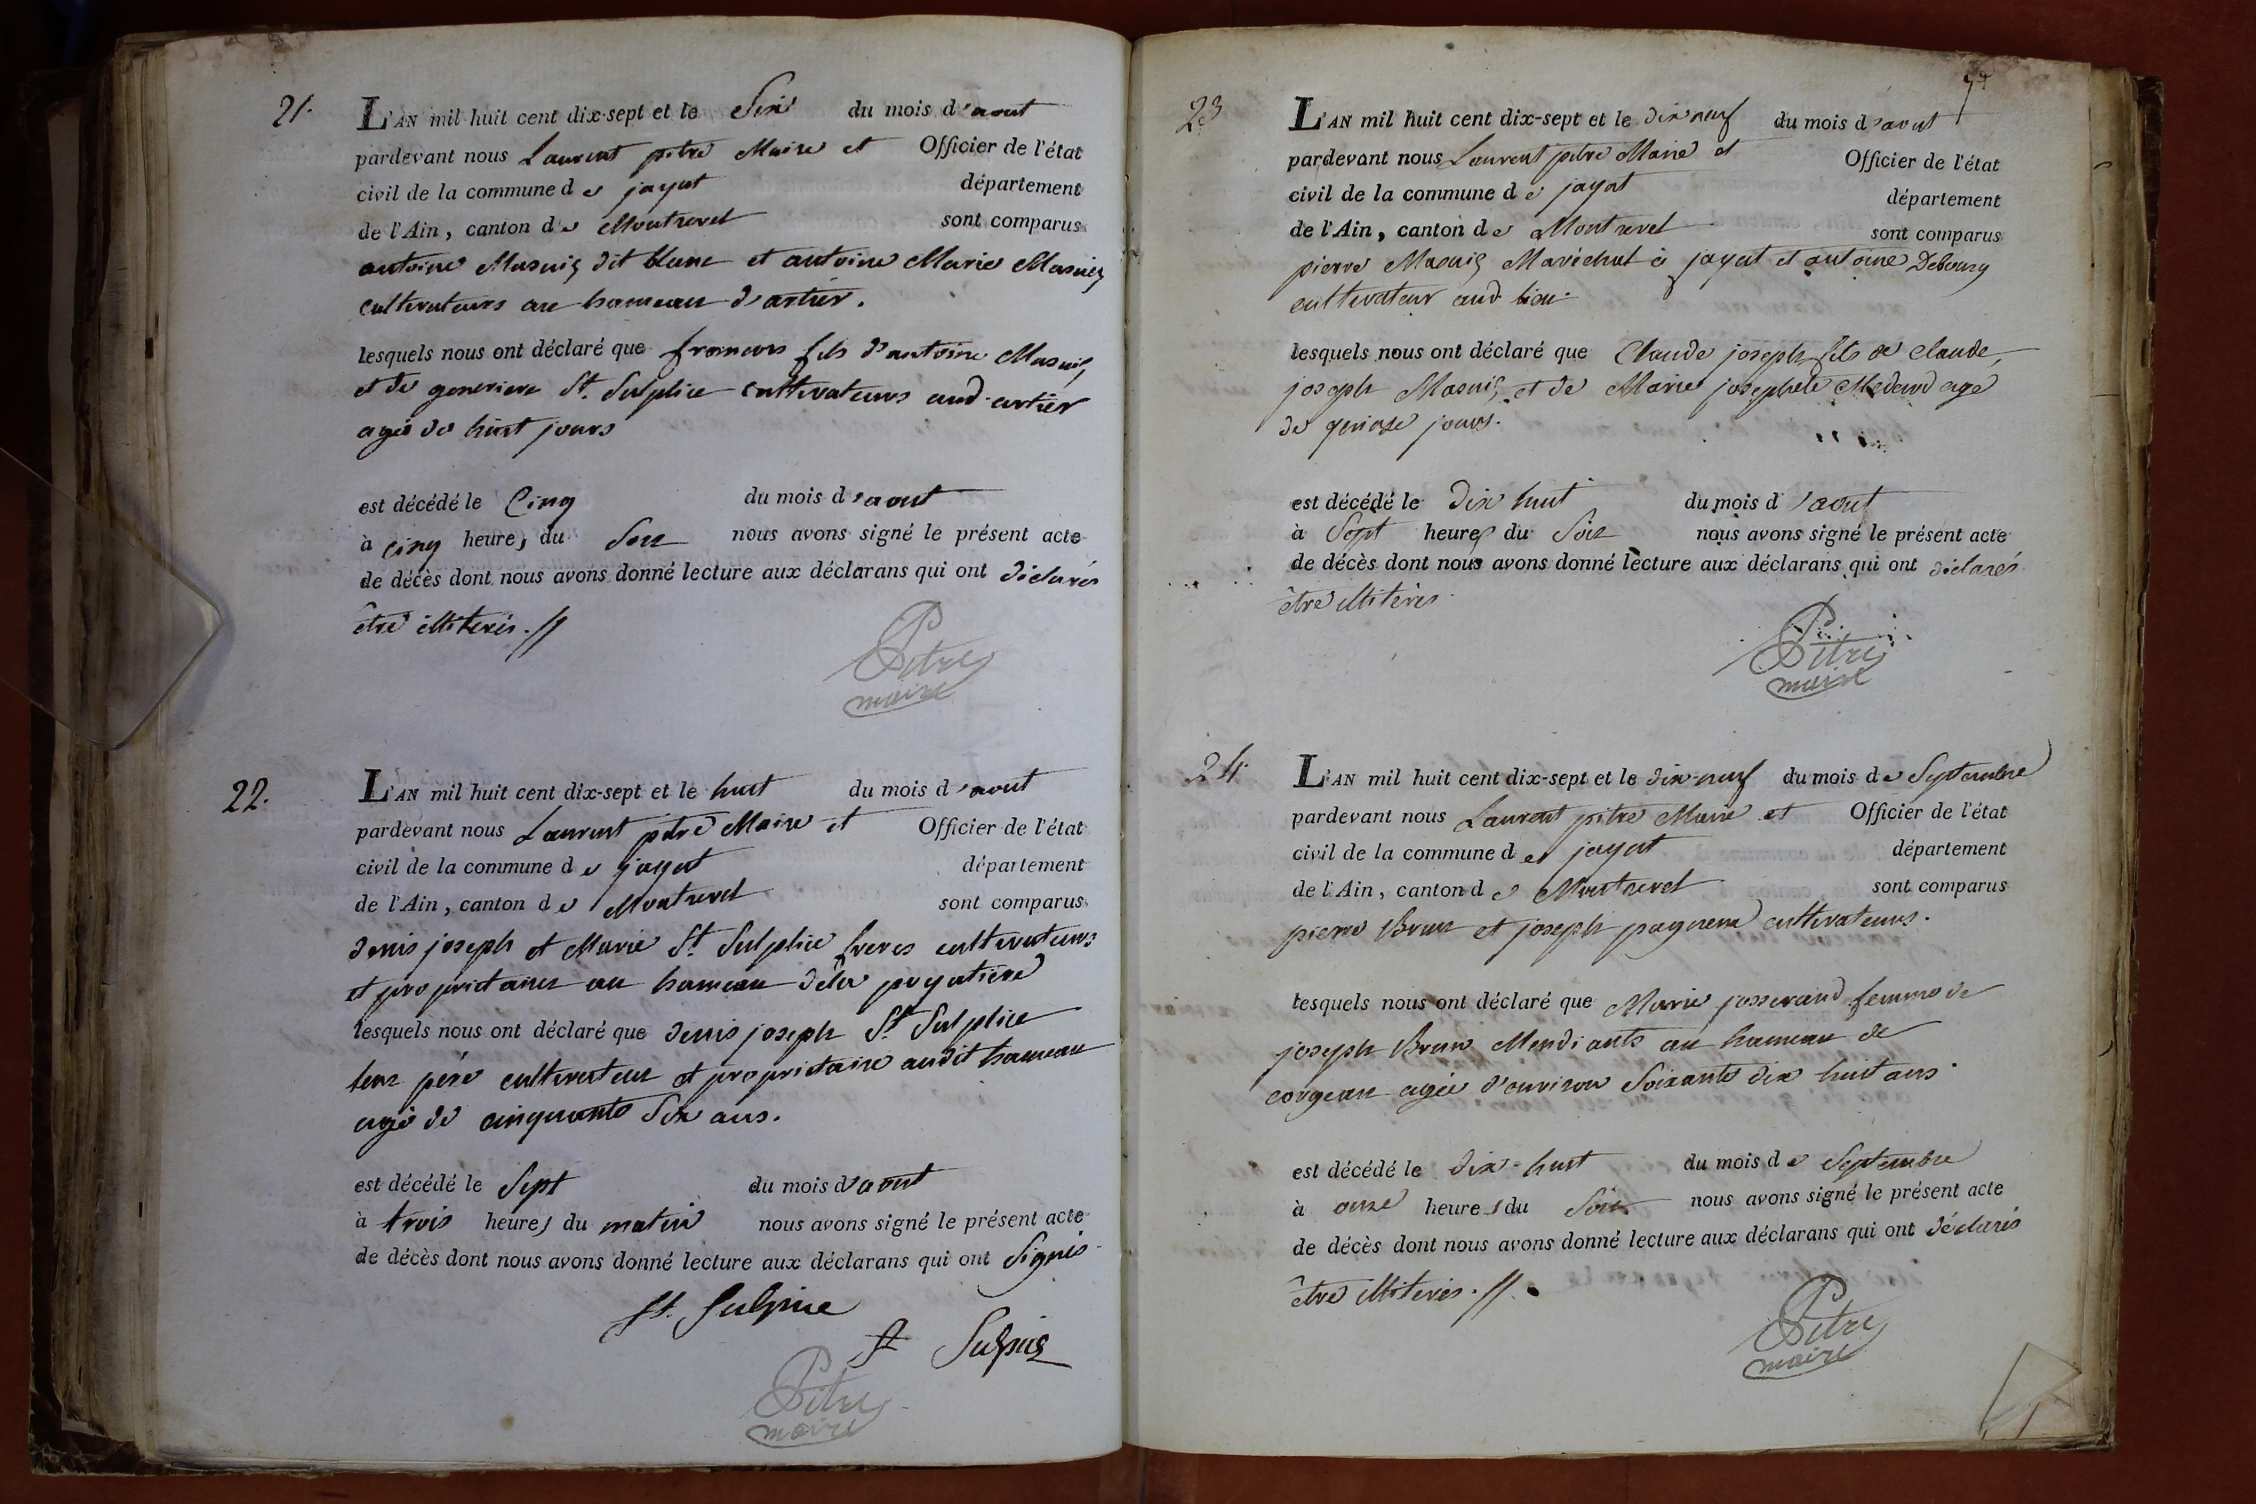 21.
L'AN mil huit cent dix-sept et le Six du mois d'aout
pardevant nous Laurent pitre Maire et Officier de l'état
civil de la commune de jayat département
de l'Ain, canton de Montrevel sont comparus
antoine Masuis dit blanc et antoine Marie Masuis
cultivateurs au hameau d'artier.
lesquels nous ont déclaré que francois fils d'antoine Masuis
et de genevieve St. Sulplice cultivateurs aud. artier
agé de huit jours
est décédé le Cinq du mois d'aout
à cinq heures du Soir nous avons signé le présent acte
de décès dont nous avons donné lecture aux déclarans qui ont déclarés
être illiterés.//
Pitre
maire
22.
L'AN mil huit cent dix-sept et le huit du mois d'aout
pardevant nous Laurent pitre Maire et Officier de l'état
civil de la commune de jayat département
de l'Ain, canton de Montrevel sont comparus
denis joseph et Marie St. Sulplice freres cultivateurs
et propriétaires au hameau de la poyatière
lesquels nous ont déclaré que denis joseph St. Sulplice
leur pére cultivateur et propriétaire audit hameau
agé de cinquante Six ans.
est décédé le Sept du mois d'aout
à trois heures du matin nous avons signé le présent acte
de décès dont nous avons donné lecture aux déclarans qui ont Signés
St. Sulpice
St Sulpis
Pitre
maire
23
L'AN mil huit cent dix-sept et le dix neuf du mois d'aout
pardevant nous Laurent pitre Maire et Officier de l'état
civil de la commune de jayat département
de l'Ain, canton de Montrevel sont comparus
pierre Masuis Maréchal à jayat et antoine Debourg
cultivateur aud. lieu.
lesquels nous ont déclaré que Claude joseph fils de Claude
joseph Masuis et de Marie josephete agé
de quinze jours.
est décédé le Dix huit du mois d'aout
à Sept heures du Soir nous avons signé le présent acte
de décès dont nous avons donné lecture aux déclarans qui ont déclarés
être illiterés.
Pitre
maire
24.
L'AN mil huit cent dix-sept et le dix-neuf du mois de Septembre
pardevant nous Laurent pitre Maire et Officier de l'état
civil de la commune de jayat département
de l'Ain, canton de Montrevel sont comparus
pierre Brun et joseph cultivateurs.
lesquels nous ont déclaré que Marie josserand femme de
joseph Brun Mendiants au hameau de
agée d'environ Soixante dix huit ans.
est décédé le dix-huit du mois de Septembre
à onze heures du Soir nous avons signé le présent acte
de décès dont nous avons donné lecture aux déclarans qui ont déclarés
être illiterés.//.
Pitre
maire